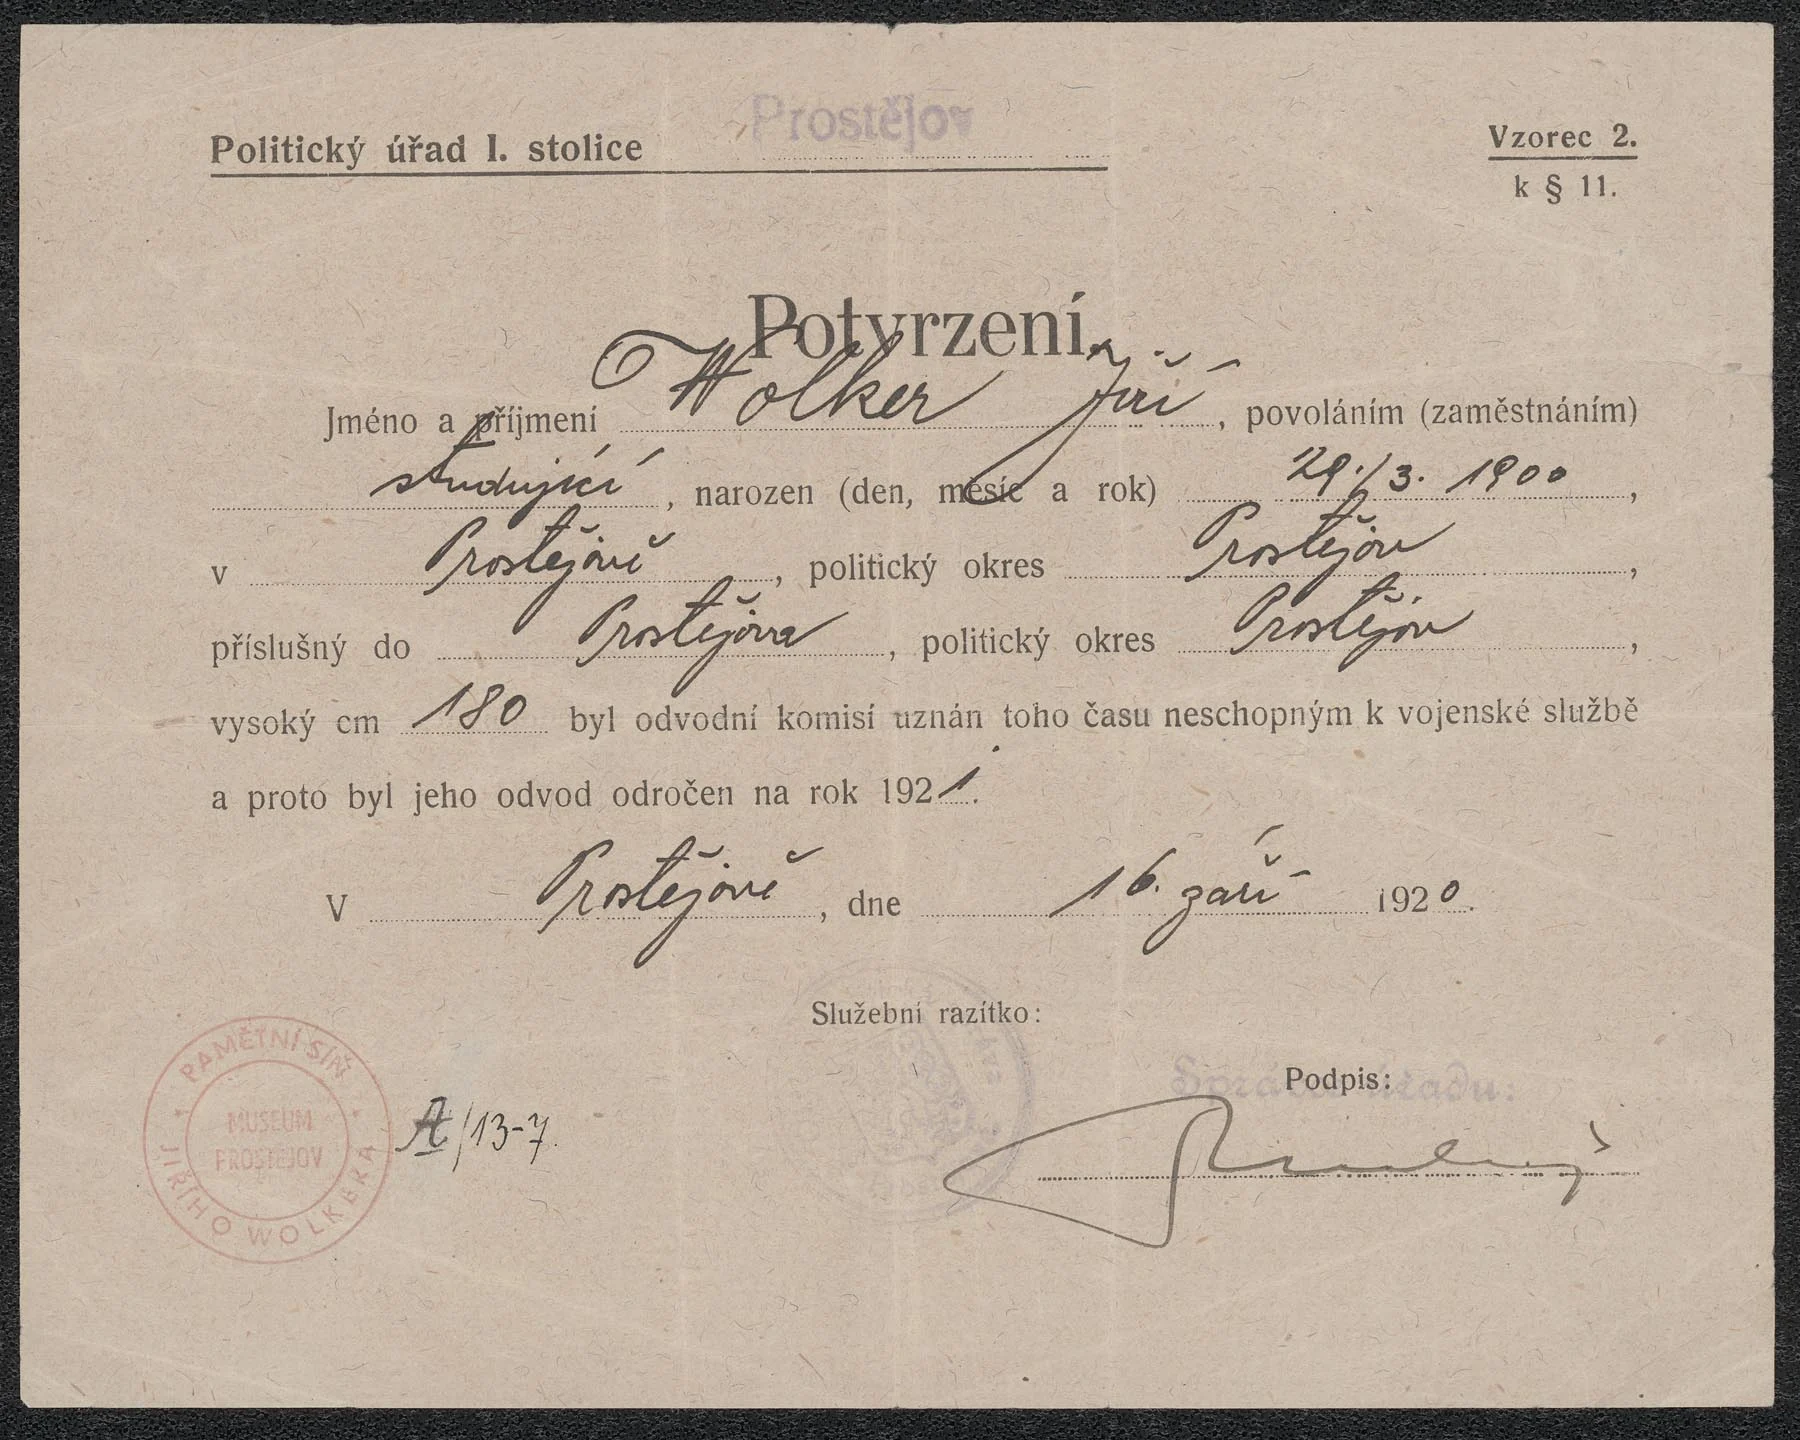 Prostějov
Politický úřad I. stolice
Vzorec 2.
k § 11.
Potvrzení.
Jméno a příjmení Wolker Jiří, povoláním (zaměstnáním)
studující, narozen (den, měsíc a rok) 29./3. 1900,
v Prostějově, politický okres Prostějov,
příslušný do Prostějova, politický okres Prostějov,
vysoký cm 180 byl odvodní komisí uznán toho času neschopným k vojenské službě
a proto byl jeho odvod odročen na rok 1921.
V Prostějově, dne 16. září 1920.
Služební razítko:
Správce úřadu:
Podpis:
PAMĚTNÍ SÍŇ
JIŘÍHO WOLKERA
MUSEUM
PROSTĚJOV
A/13-7.